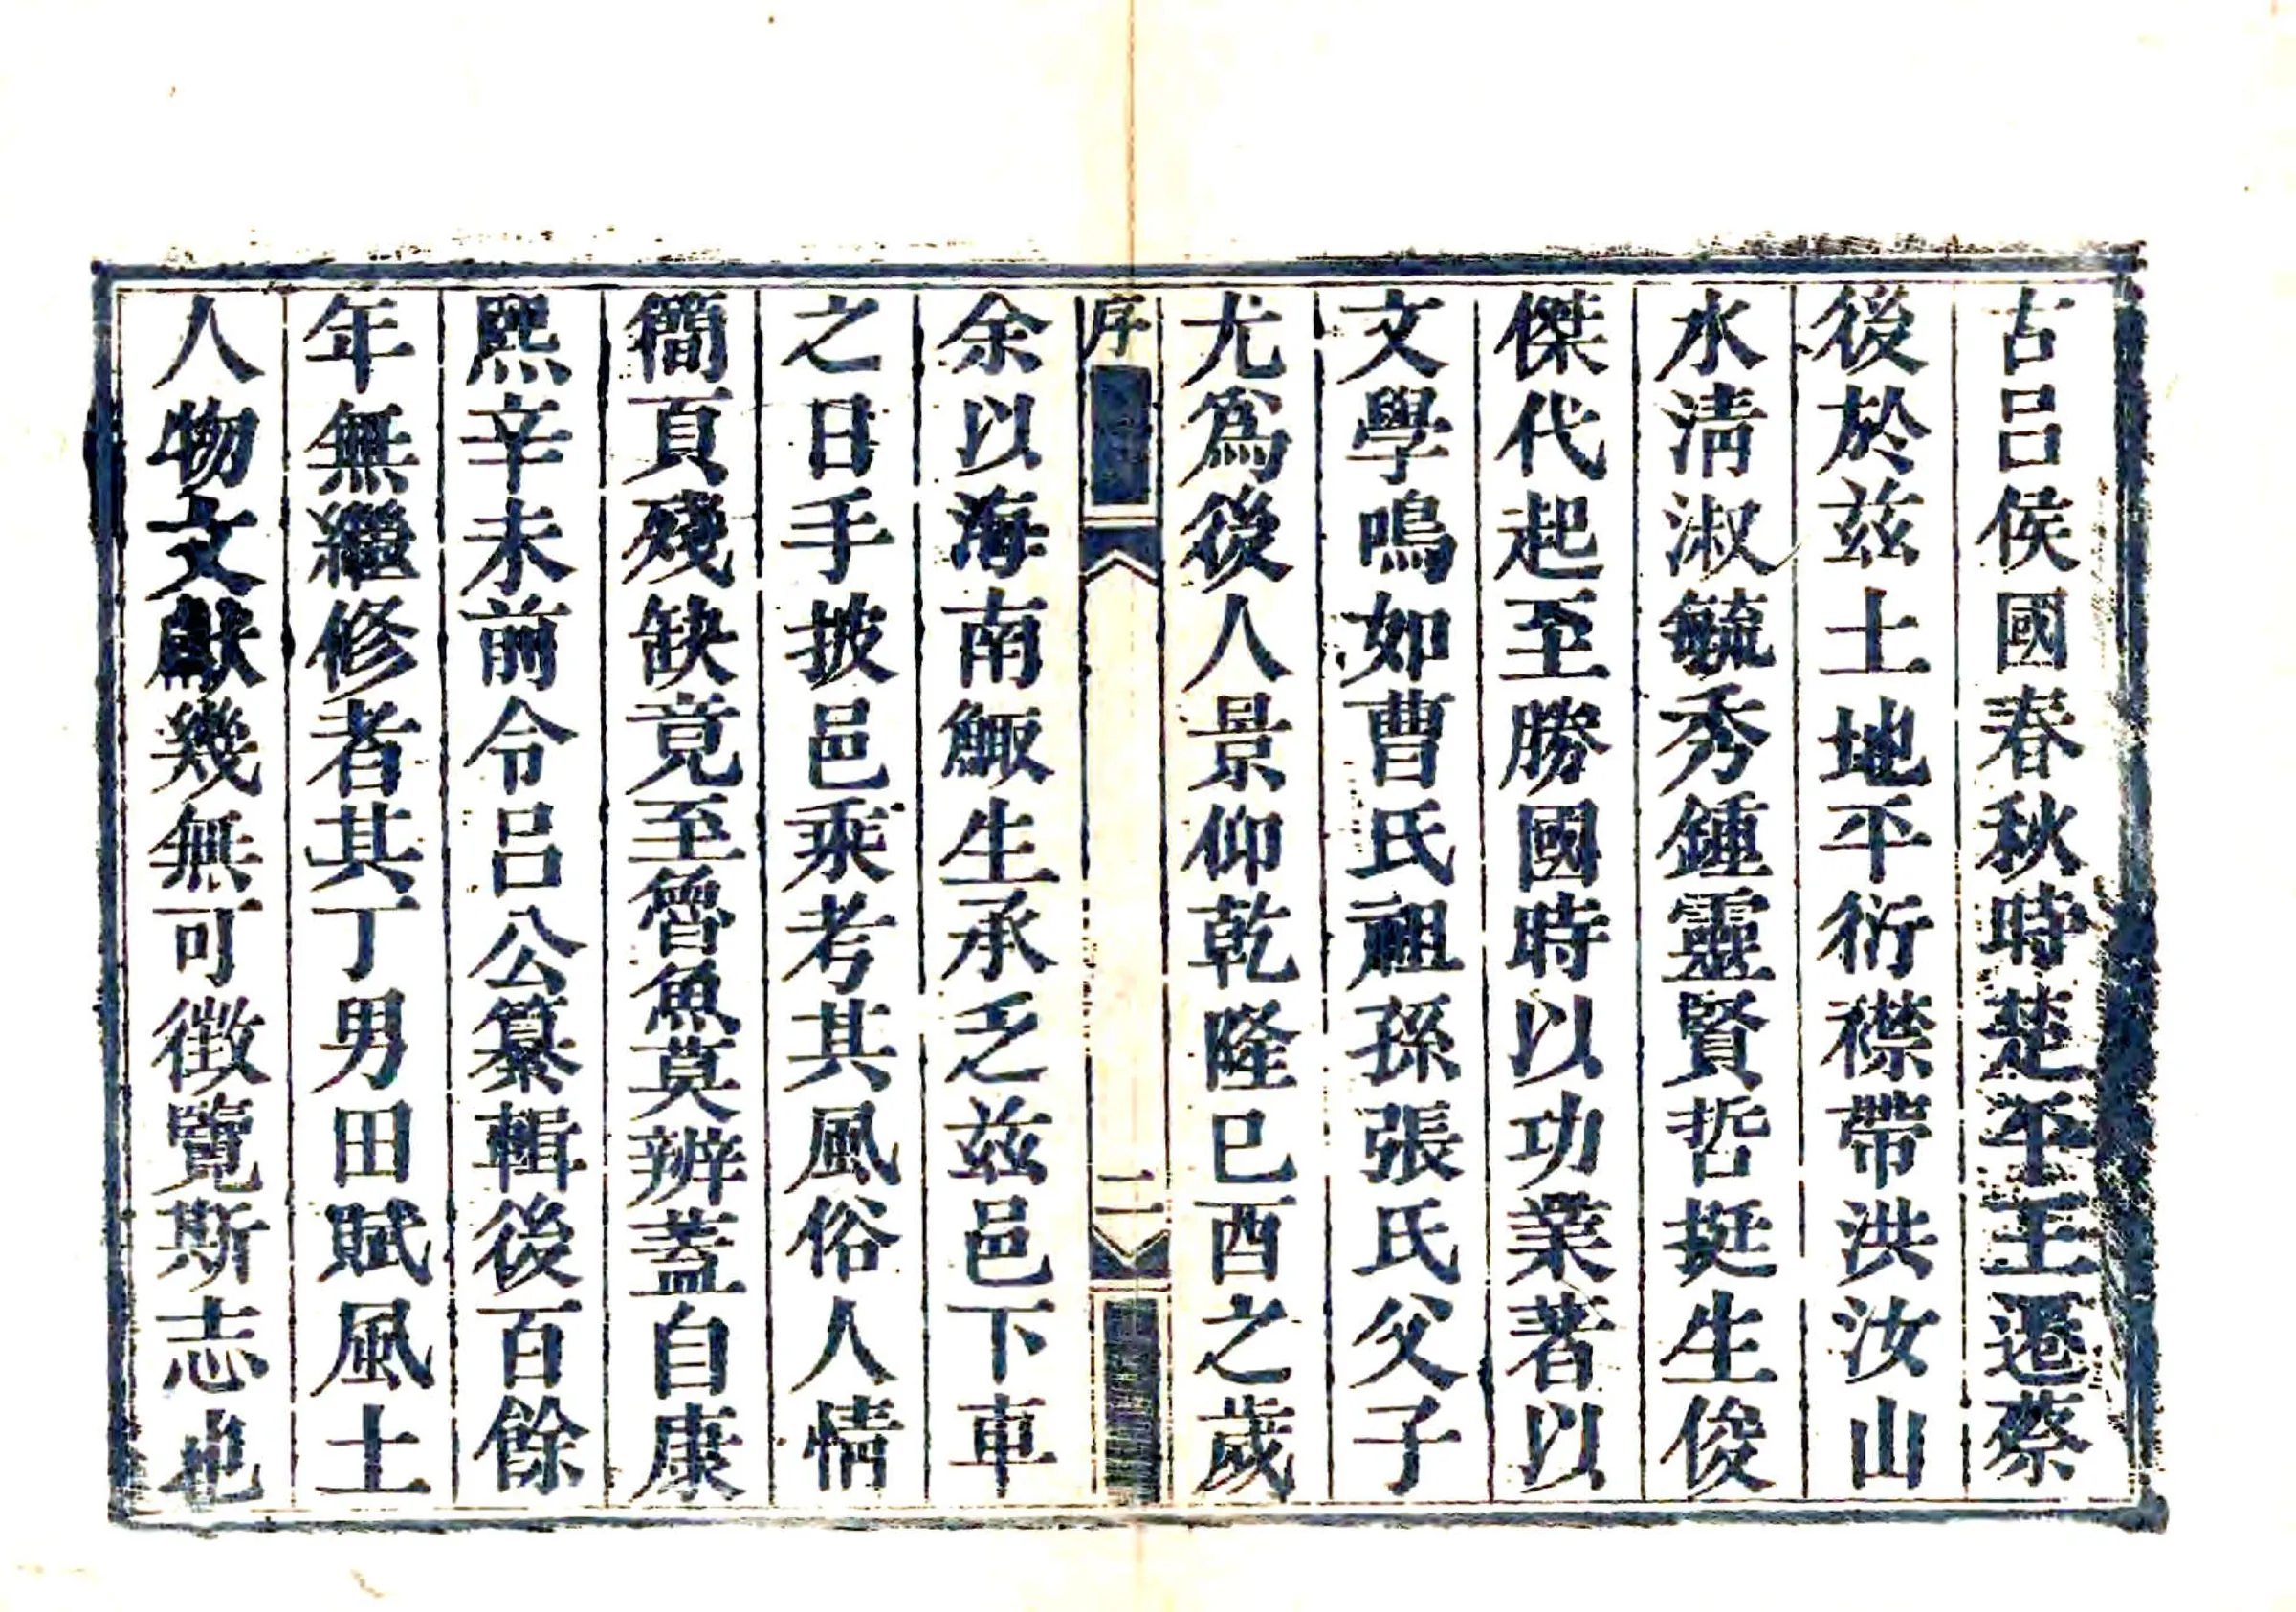 古呂侯國春秋時楚平王遷蔡
後於茲土地平衍襟帶洪汝山
水清淑毓秀鍾靈賢哲挺生俊
傑代起至勝國時以功業著以
文學鳴如曹氏祖孫張氏父子
尤爲後人景仰乾隆已酉之歲
序
二
余以海南鯫生承乏茲邑下車
之日手披邑乘考其風俗人情
簡頁殘缺竟至魯魚莫辨蓋自康
熙辛未前令呂公纂輯後百餘
年無繼修者其丁男田賦風土
人物文獻幾無可徵覽斯志也